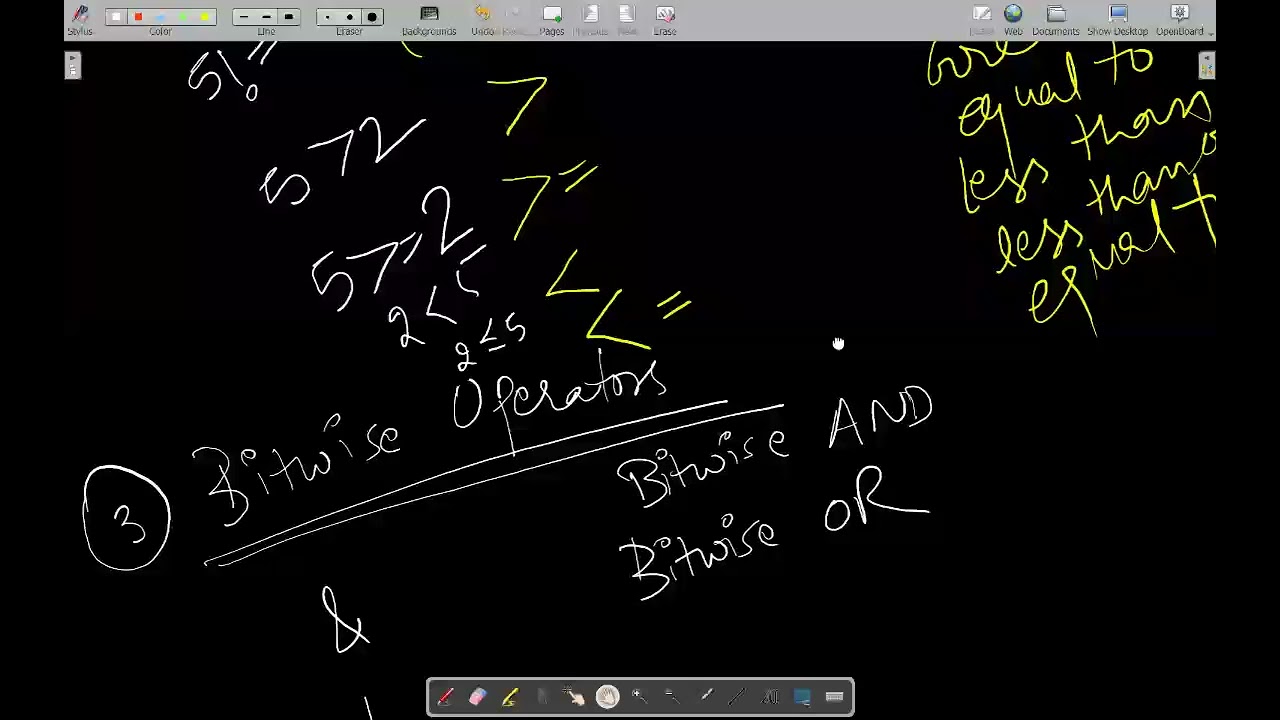 Stylus Color Line Eraser Backgrounds Undo Pages Previous Erase Web Documents Show Desktop OpenBoard
5!=
5>2 >
5>=2 >=
2< <
2≤5 <=
equal to
less than
less than
equal t
3 Bitwise Operators
Bitwise AND
Bitwise OR
&